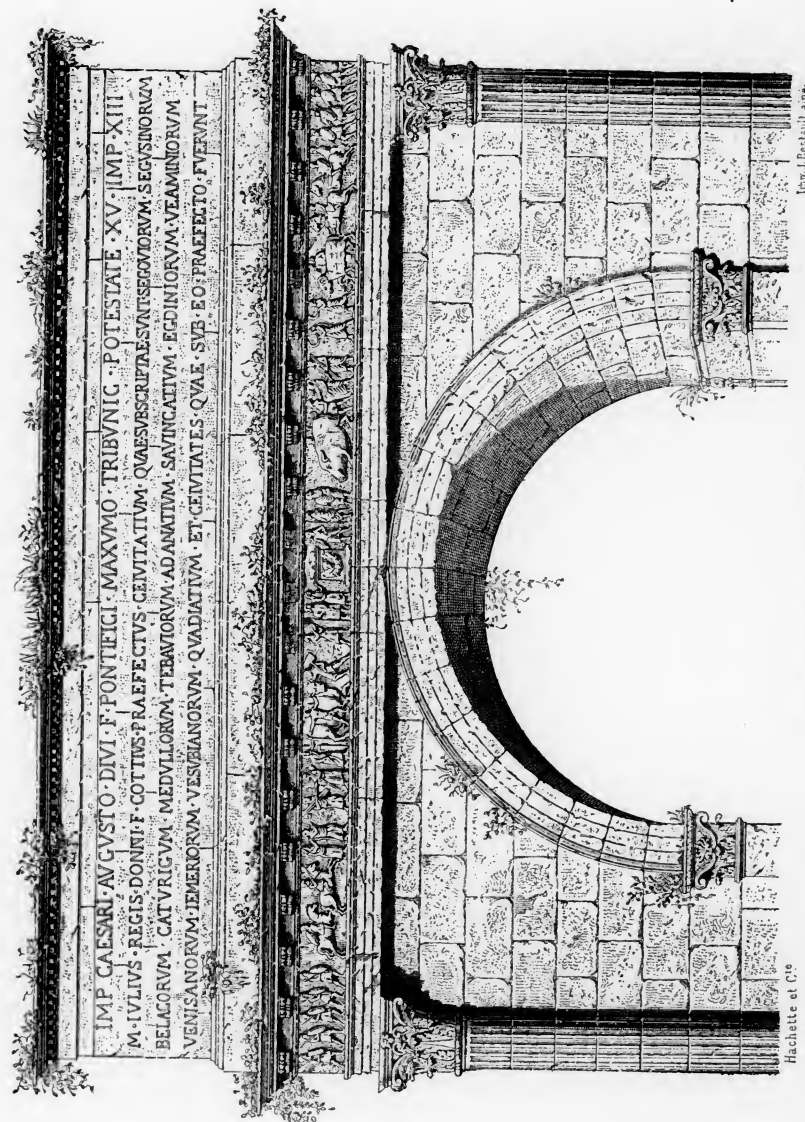 IMP CAESARI·AVGVSTO·DIVI·F·PONTIFICI·MAXVMO·TRIBVNIC·POTESTATE·XV·IMP·XIII
M·IVLIVS·REGIS·DONNI·F·COTTIVS·PRAEFECTVS·CEIVITATIVM·QVAESVBSCRIPTAESVNT·SEGOVIORVM·SEGVSINORVM
BELACORVM·CATVRIGVM·MEDVLLORVM·TEBAVIORVM·ADANATIVM·SAVINCATIVM·EGDINIORVM·VEAMINIORVM
VENISANORVM·IEMERIORVM·VESVBIANORVM·QVADIATIVM·ET·CEIVITATES·QVAE·SVB·EO·PRAEFECTO·FVERVNT
Hachette et Cie
Imp.